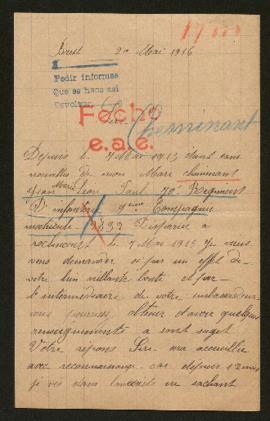 17
Brest 20 Mai 1916
Pedir informes
Que se haga así
Devolver
Sire
Cheminant
Fecho
e.a.e.
Depuis le 7 Mai 1915 étant sans
nouvelles de mon Mari cheminant
Jean Marie Léon Paul 70e Régiment
d'infanterie 9eme Compagnie
matricule Disparue a
rochincourt le 7 Mai 1915 Je viens
vous demander si par un effet de
votre bienveillante bonté et par
l'intermédiaire de votre ambassadeur
vous pourriez obtenir d'avoir quelques
renseignements a sont sujet
Votre réponse Sire sera accueillie
avec reconnaissance car depuis 12 mois
je vis dans l'anxiété ne sachant